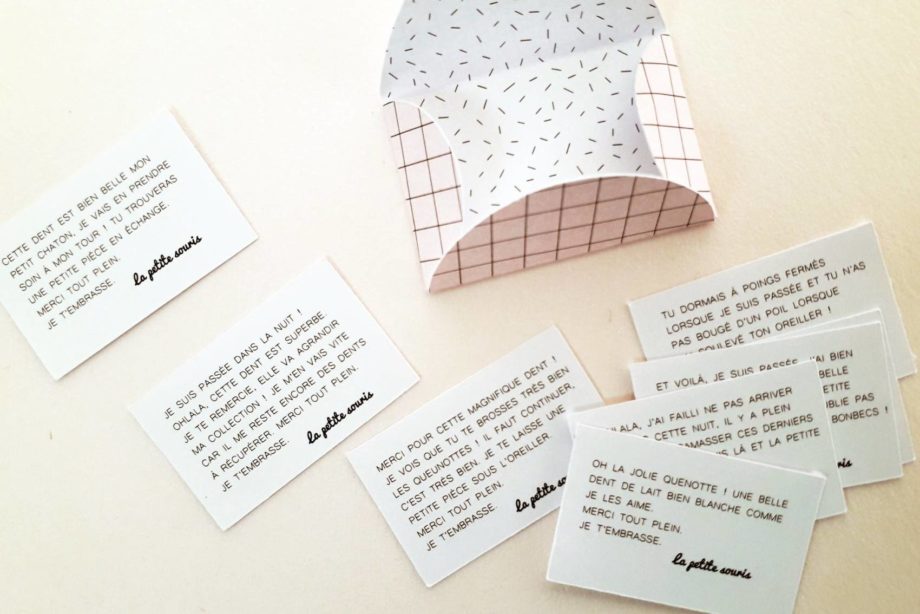 CETTE DENT EST BIEN BELLE MON
PETIT CHATON, JE VAIS EN PRENDRE
SOIN À MON TOUR ! TU TROUVERAS
UNE PETITE PIÈCE EN ÉCHANGE.
MERCI TOUT PLEIN.
JE T'EMBRASSE.
la petite souris
JE SUIS PASSÉE DANS LA NUIT !
OHLALA, CETTE DENT EST SUPERBE.
JE TE REMERCIE, ELLE VA AGRANDIR
MA COLLECTION ! JE M'EN VAIS VITE
CAR IL ME RESTE ENCORE DES DENTS
À RÉCUPÉRER. MERCI TOUT PLEIN.
JE T'EMBRASSE.
la petite souris
MERCI POUR CETTE MAGNIFIQUE DENT !
JE VOIS QUE TU TE BROSSES TRÈS BIEN
LES QUEUNOTTES ! IL FAUT CONTINUER,
C'EST TRÈS BIEN. JE TE LAISSE UNE
PETITE PIÈCE SOUS L'OREILLER.
MERCI TOUT PLEIN.
JE T'EMBRASSE.
la petite so
TU DORMAIS À POINGS FERMÉS
LORSQUE JE SUIS PASSÉE ET TU N'AS
PAS BOUGÉ D'UN POIL LORSQUE
SOULEVÉ TON OREILLER !
ET VOILÀ, JE SUIS PASSÉE, J'AI BIEN
BELLE
PETITE
UBLIE PAS
BONBECS !
HLALA, J'AI FAILLI NE PAS ARRIVER
CETTE NUIT, IL Y A PLEIN
AMASSER CES DERNIERS
IS LÀ ET LA PETITE
ris
OH LA JOLIE QUENOTTE ! UNE BELLE
DENT DE LAIT BIEN BLANCHE COMME
JE LES AIME.
MERCI TOUT PLEIN.
JE T'EMBRASSE.
la petite souris